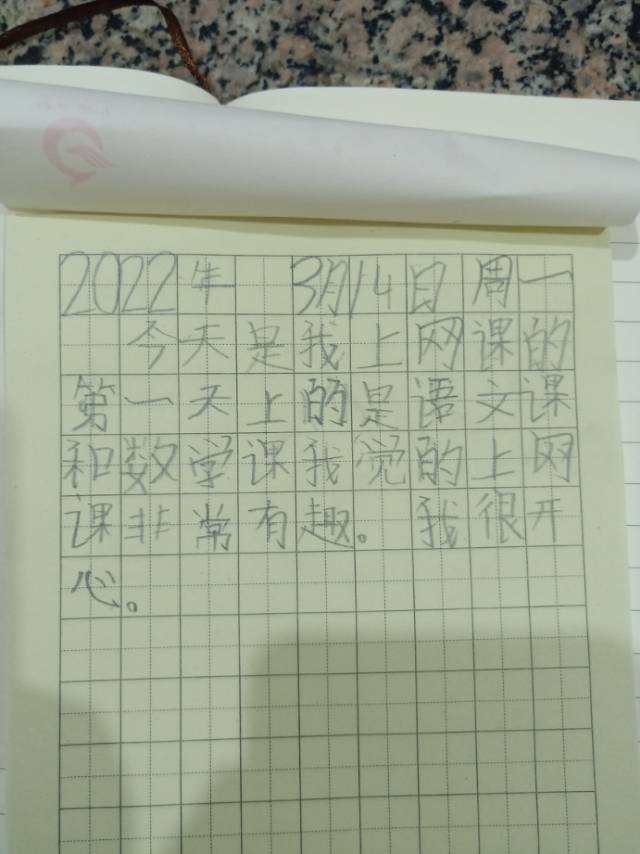 2022年 3月14日 周一
今天是我上网课的
第一天上的是语文课
和数学课我觉的上网
课非常有趣。我很开
心。